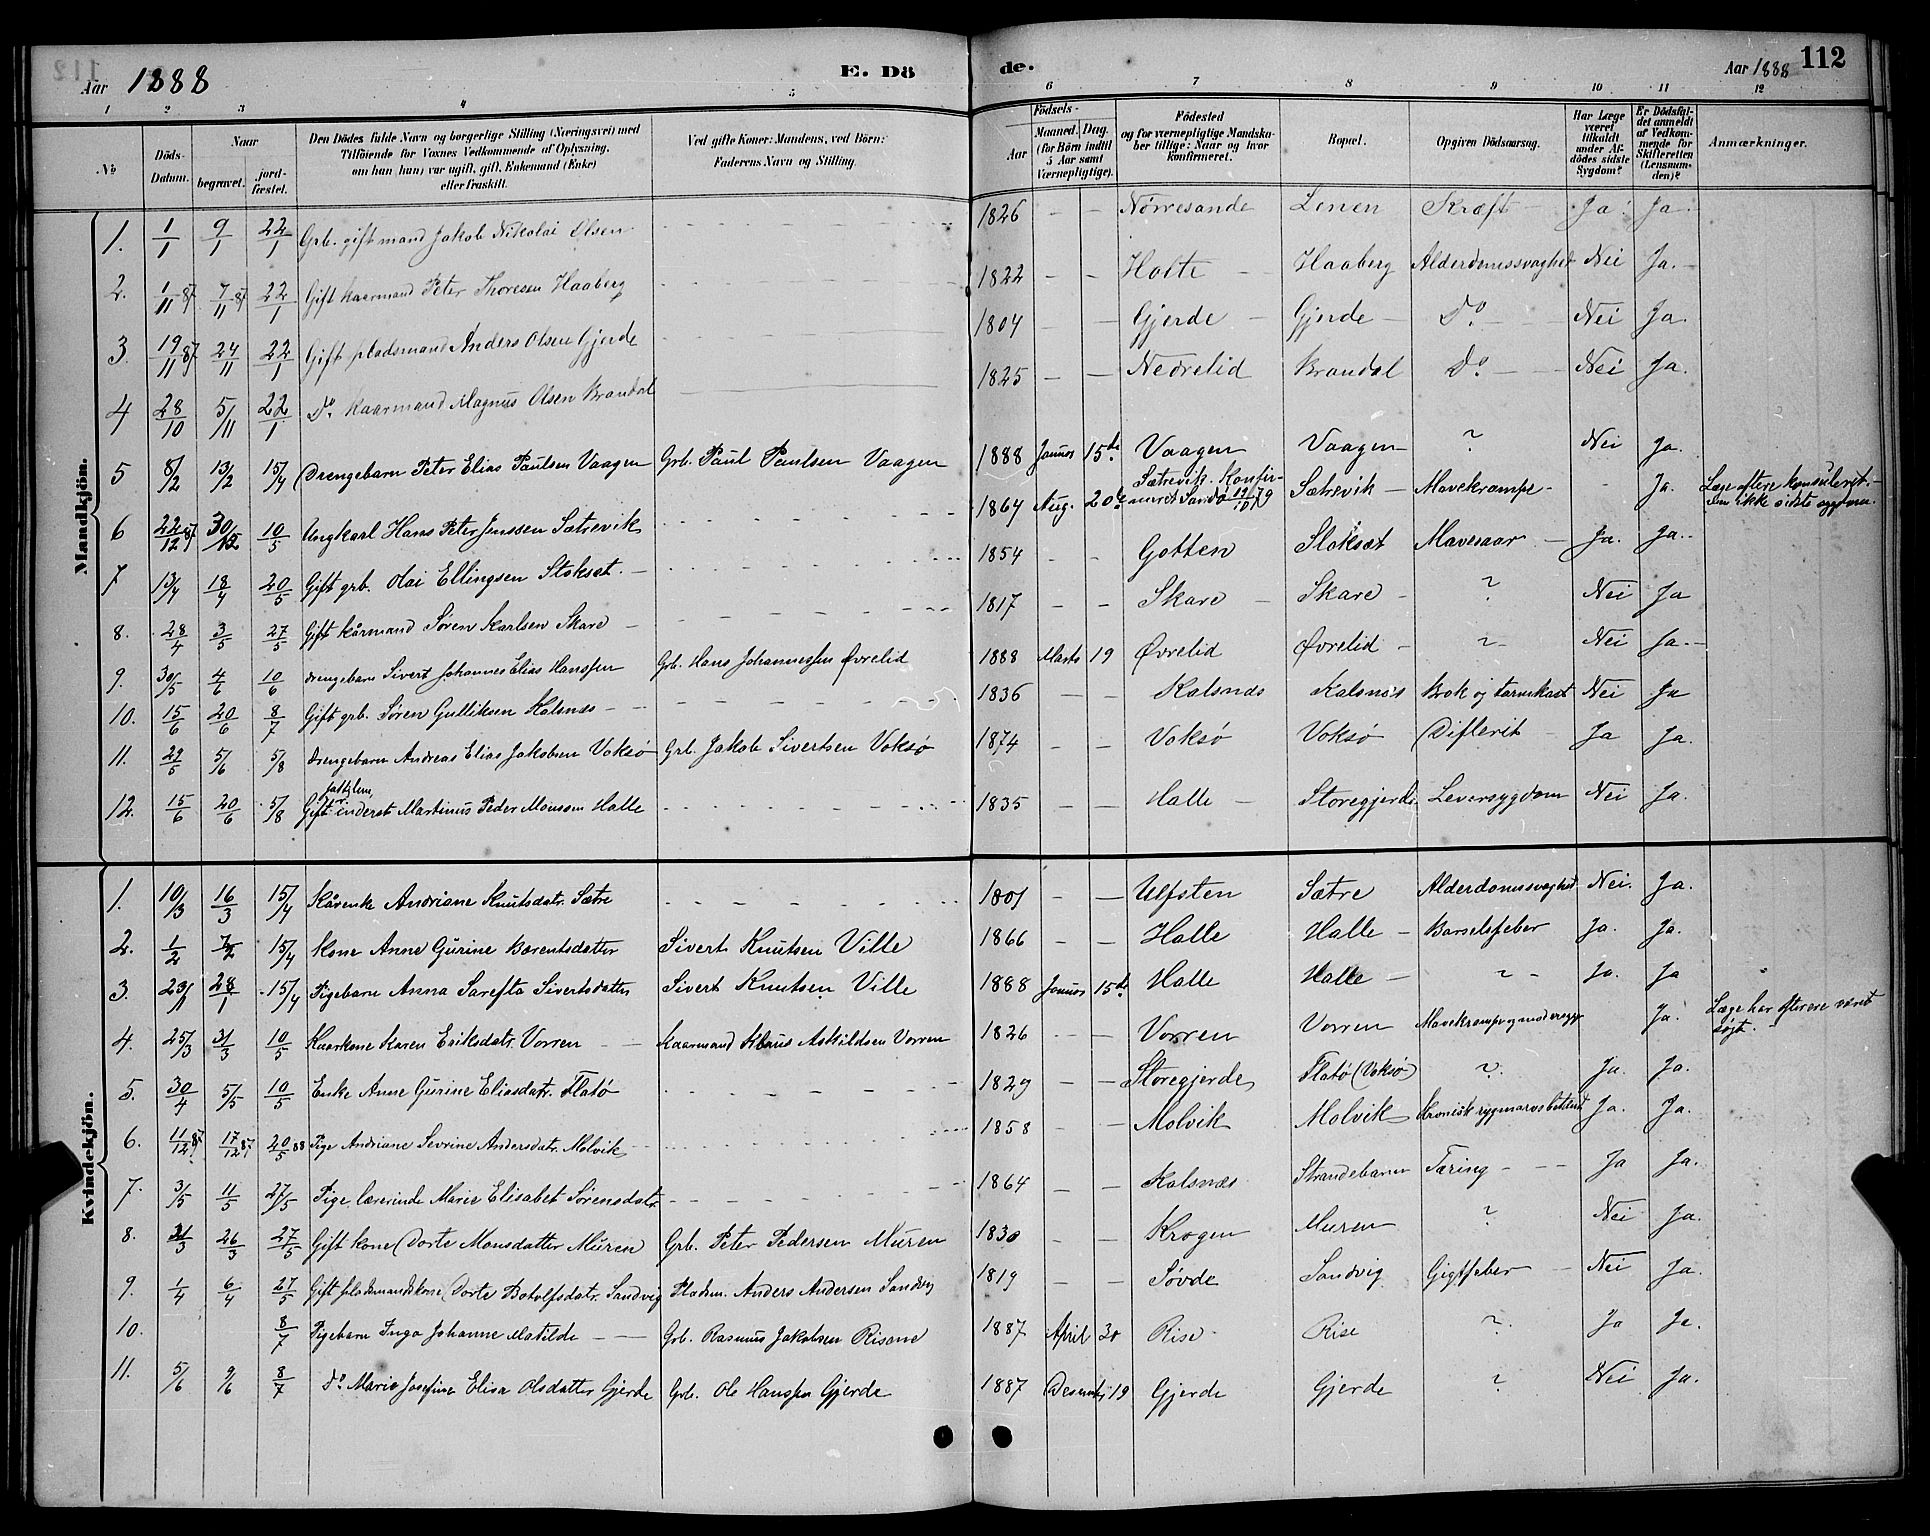 112
Aar 1888 E. Dö de. Aar 1888
1 2 3 4 5 6 7 8 9 10 11 12
№ Döds-Datum. Naar begravet. jord-fæstet. Den Dödes fulde Navn og borgerlige Stilling (Næringsvei) med Tilföiende for Voxnes Vedkommende af Oplysning, om han (hun) var ugift, gift, Enkemand (Enke) eller fraskilt. Ved gifte Koner: Mandens, ved Börn: Faderens Navn og Stilling. Födsels- Aar Maaned. Dag. (for Börn indtil 5 Aar samt Værnepligtige). Födested og for værnepligtige Mandskaber tillige: Naar og hvor konfirmeret. Bopæl. Opgiven Dödsaarsag. Har Læge været tilkaldt under Afdödes sidste Sygdom? Er Dödsfaldet anmeldt af Vedkommende for Skifteretten (Lensmanden)? Anmærkninger.
Mandkjön.
1. 1/1 9/1 22/1 Grb. gift mand Jakob Nikolai Olsen 1826 — — Nørresande Lenen Kræft Ja. Ja.
2. 1/11 87 7/11 87 22/1 Gift kaarmand Peter Thoresen Haaberg 1822 — — Holte Haaberg Alderdomssvaghed Nei Ja.
3. 19/11 87 24/11 22/1 Gift pladsmand Anders Olsen Gjerde 1804 — — Gjerde Gjerde Do. Nei Ja.
4 28/10 5/11 22/1 Do. Kaarmand Magnus Olsen Brandal 1825 — — Nedrelid Brandal Do. Nei Ja.
5 8/2 13/2 15/4 Drengebarn Peter Elias Paulsen Vaagen Grb. Paul Paulsen Vaagen 1888 Januar 15de Vaagen Vaagen ? Nei Ja.
6 22/12 87 30/12 10/5 Ungkarl Hans Peter Jenssen Sætrevik 1864 Aug. 20de Sætrevik. Konfirmeret Sandø 19/10 79 Sætrevik Mavekrampe Ja. Læge oftere konsuleret
7 13/4 18/4 20/5 Gift grb. Olai Ellingsen Stoksæt 1854 — — Gotten Stoksæt Mavesaar Ja. Ja.
8. 28/4 3/5 27/5 Gift kårmand Søren Karlsen Skare 1817 — — Skare Skare ? Nei Ja
9. 30/5 4/6 10/6 Drengebarn Sivert Johannes Elias Hanssen Grb. Hans Johannessen Øvrelid 1888 Marts 19 Øvrelid Øvrelid ? Nei Ja.
10. 15/6 20/6 8/7 Gift grb. Søren Gulliksen Kalsnæs 1836 — — Kalsnæs Kalsnæs Brok og Nei Ja
11. 29/5 5/6 5/8 Drengebarn Andreas Elias Jakobsen Voksø Grb. Jakob Sivertsen Voksø 1874 — — Voksø Voksø Difterit Ja Ja.
12. 15/6 20/6 5/8 Gift fattiglem, inderst Martinus Peder Monsen Halle 1835 — — Halle Storegjerde Leversygdom Nei Ja.
Kvindekjön.
1. 10/3 16/3 15/4 Kårenke Andriane Knutsdatr. Sætre 1801 — — Ulfsten Sætre Alderdomssvaghed Nei. Ja.
2. 1/2 7/2 15/4 Kone Anne Gurine Bærentsdatter Sivert Knutsen Ville 1866 — — Halle Halle Barselsfeber Ja. Ja.
3. 23/1 28/1 15/4 Pigebarn Anna Sarefta Sivertsdatter Sivert Knutsen Ville 1888 Januar 15de Halle Halle ? Ja. Ja
4. 25/3 31/3 10/5 Kaarkone Karen Eriksdatr. Vorren Kaarmand Klaus Askildsen Vorren 1826 — — Vorren Vorren Mavekrampe og Ja. Læge har oftere været søgt.
5. 30/4 5/5 10/5 Enke Anne Gurine Eliasdatr. Flatø 1829 — — Storegjerde Flatø (Voksø) ? Ja. Ja.
6. 11/12 87 17/12 87 20/5 88 Pige Andriane Sevrine Andersdatr. Molvik 1858 — — Molvik Molvik Kronisk rygmarvsbetænd. Ja. Ja.
7. 3/5 11/5 27/5 Pige, lærerinde Marie Elisabet Sørensdatr. 1864 — — Kalsnæs Strandebarm Tæring Ja Ja.
8. 21/3 26/3 27/5 Gift kone Dorte Monsdatter Muren Grb. Peter Pedersen Muren 1830 — — Krogen Muren ? Nei Ja.
9. 1/4 6/4 27/5 Gift pladsmandskone Dorte Botolfsdatr. Sandvig Pladsm. Anders Andersen Sandvig 1819 — — Søvde Sandvig Gigtfeber Nei Ja.
10. 8/7 Pigebarn Inga Johanne Matilde Grb. Rasmus Jakobsen Risane 1887 April 30 Rise Rise ? Ja Ja.
11. 5/6 9/6 8/7 Do. Marie Josefine Elisa Olsdatter Gjerde Grb. Ole Hanssen Gjerde 1887 Desember 19 Gjerde Gjerde ? Nei Ja.